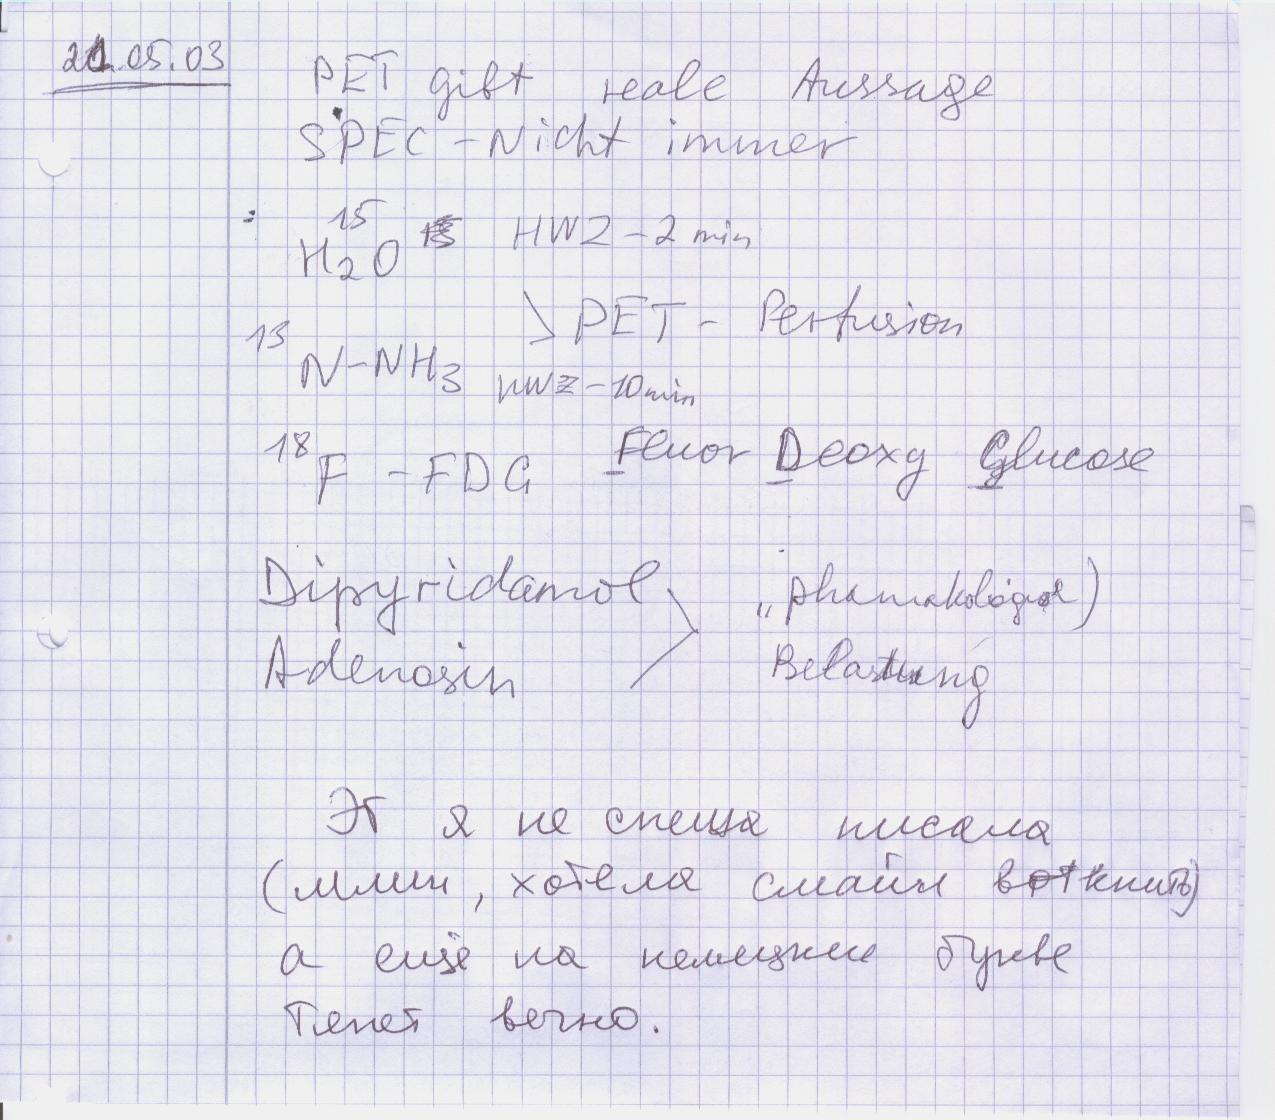 21.05.03
PET gibt reale Aussage
SPEC - Nicht immer
H₂¹⁵O HWZ - 2 min
> PET - Perfusion
¹³N-NH₃ HWZ - 10 min
¹⁸F - FDG Fluor Deoxy Glucose
Dipyridamol
Adenosin
Belastung
Эт я не спеша писала
(млин, хотела смайл воткнить)
а ещё на немецкие букве
тянет вечно.